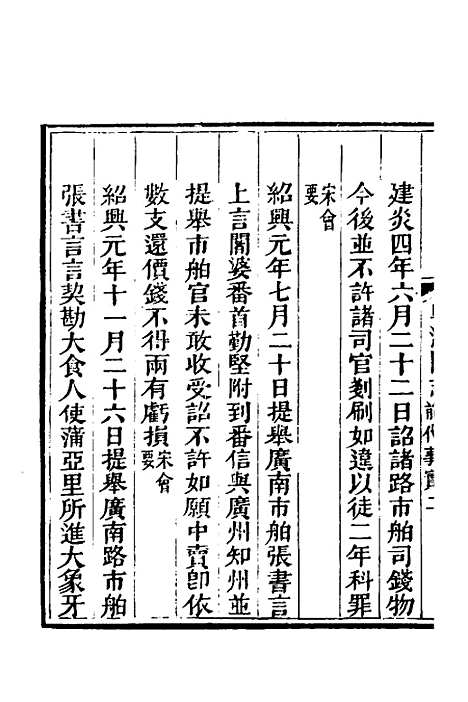 建炎四年六月二十二日詔諸路市舶司錢物
今後並不許諸司官剗刷如違以徒二年科罪
宋會
要
紹興元年七月二十日提舉廣南市舶張書言
上言闍婆番首勤堅附到番信與廣州知州並
提舉市舶官未敢收受詔不許如願中賣卽依
數支還價錢不得兩有虧損宋會
要
紹興元年十一月二十六日提舉廣南路市舶
張書言言契勘大食人使蒲亞里所進大象牙